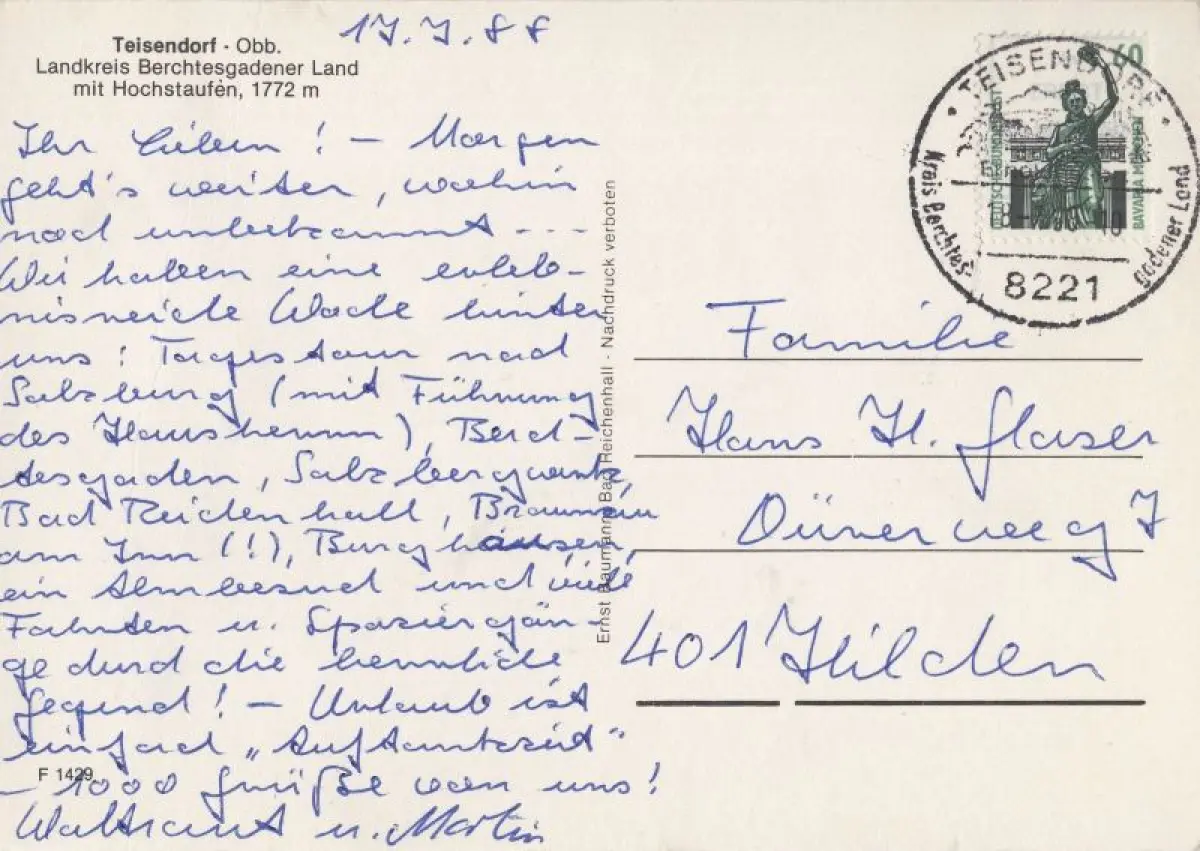 17.7.88
Teisendorf · Obb.
Landkreis Berchtesgadener Land
mit Hochstaufen, 1772 m
Ihr Lieben! – Morgen
geht's weiter, wohin
noch unbekannt ---
Wir haben eine erleb-
nisreiche Woche hinter
uns: Tagestour nach
Salzburg (mit Führung
des Hausherrn), Berch-
tesgaden, Salzbergwerk,
Bad Reichenhall, Braunau
am Inn (!!), Burghausen,
ein Almbesuch und viele
Fahrten u. Spaziergän-
ge durch die herrliche
Gegend! – Urlaub ist
einfach „Auftankzeit"
– 1000 Grüße von uns!
Waltraut u. Martin
F 1429
Ernst Baumann, Bad Reichenhall - Nachdruck verboten
60
DEUTSCHE BUNDESPOST
BAVARIA MÜNCHEN
TEISENDORF
Kreis Berchtes-
gadener Land
8221
Familie
Hans H. Glaser
Dürerweg 7
401 Hilden